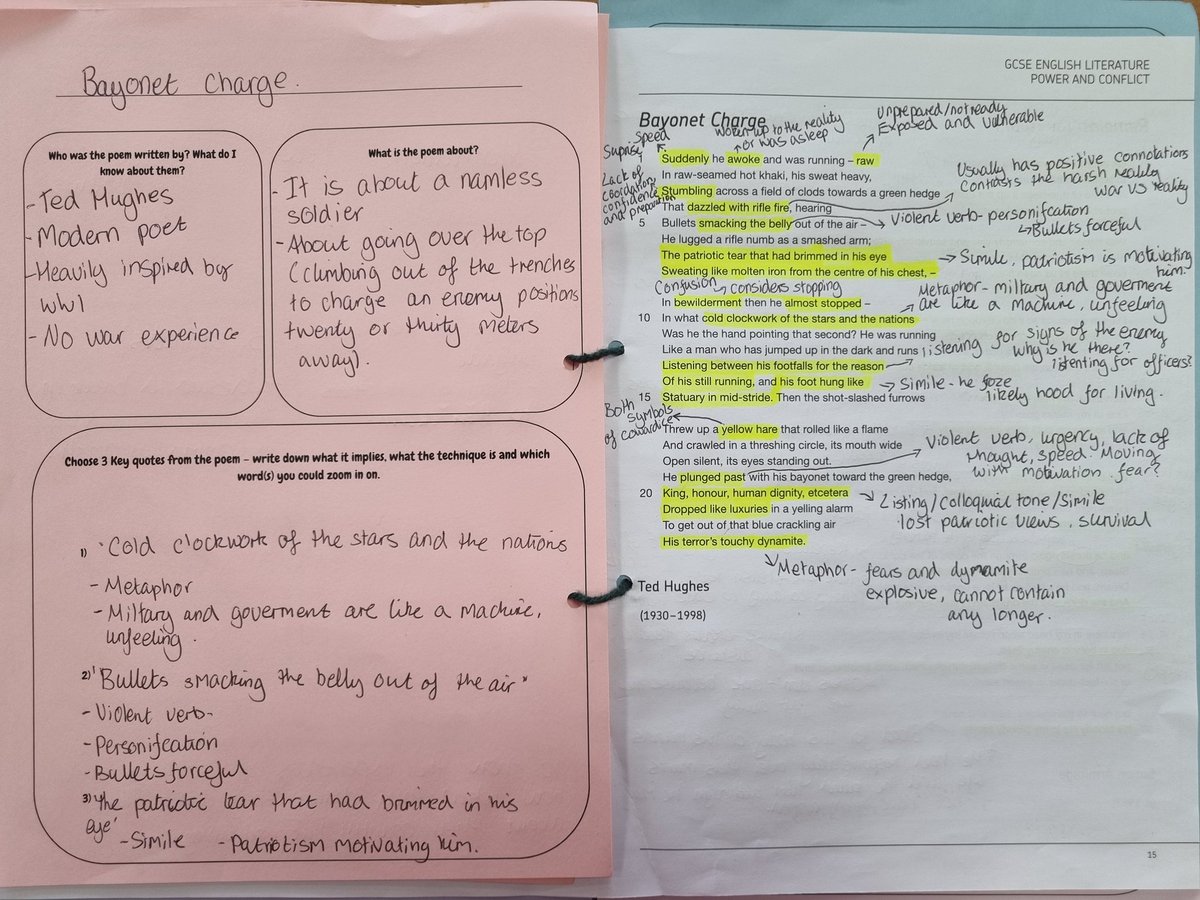 Bayonet Charge.
Who was the poem written by? What do I
know about them?
- Ted Hughes
- Modern poet
- Heavily inspired by
WW1
- No war experience
What is the poem about?
- It is about a namless
soldier
- About going over the top
(climbing out of the trenches
to charge an enemy positions
twenty or thirty meters
away).
Choose 3 Key quotes from the poem – write down what it implies, what the technique is and which
word(s) you could zoom in on.
1) 'Cold clockwork of the stars and the nations
- Metaphor
- Miltary and goverment are like a machine,
unfeeling.
2) 'Bullets smacking the belly out of the air"
- Violent verb-
- Personifcation
- Bullets forceful
3) 'the patriotic tear that had brimmed in his
eye'
- Simile - Patriotism motivating him.
GCSE ENGLISH LITERATURE
POWER AND CONFLICT
Bayonet Charge
Suprise
speed
woken up to the reality
or was asleep
Unprepared/not ready
Exposed and vulnerable
Suddenly he awoke and was running – raw
In raw-seamed hot khaki, his sweat heavy,
Lack of
coordation,
confidence
and preparation
Stumbling across a field of clods towards a green hedge
That dazzled with rifle fire, hearing
Usually has positive connotations
Contrasts the harsh reality
war vs reality
5 Bullets smacking the belly out of the air –
Violent verb- personifcation
Bullets forceful
He lugged a rifle numb as a smashed arm;
The patriotic tear that had brimmed in his eye
Sweating like molten iron from the centre of his chest, –
Simile, patriotism is motivating
him.
Confusion
considers stopping
In bewilderment then he almost stopped –
10 In what cold clockwork of the stars and the nations
Metaphor- miltary and goverment
are like a machine, unfeeling
Was he the hand pointing that second? He was running
Like a man who has jumped up in the dark and runs
Listening between his footfalls for the reason
listening for signs of the enemy
why is he there?
listenting for officers?
Of his still running, and his foot hung like
15 Statuary in mid-stride. Then the shot-slashed furrows
Simile - he foze
likely hood for living.
Both
symbols
of cowardice
Threw up a yellow hare that rolled like a flame
And crawled in a threshing circle, its mouth wide
Open silent, its eyes standing out.
He plunged past with his bayonet toward the green hedge,
Violent verb, urgency, lack of
thought, speed. Moving
with motivation. fear?
20 King, honour, human dignity, etcetera
Dropped like luxuries in a yelling alarm
Listing/Colloquial tone/Simile
lost patriotic views. survival
To get out of that blue crackling air
His terror's touchy dynamite.
Metaphor- fears and dymamite
explosive, cannot contain
any longer.
Ted Hughes
(1930–1998)
15